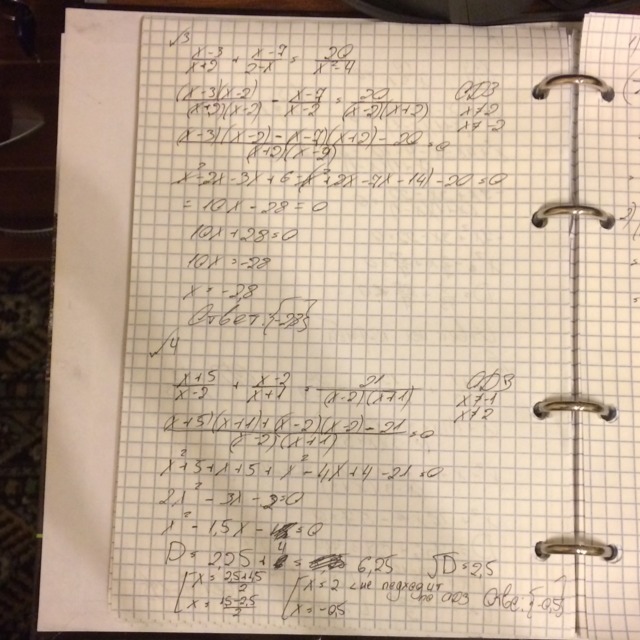 √3
(x-3)/(x+2) + (x-7)/(2-x) = 20/(x²-4)
(x-3)(x-2)/((x+2)(x-2)) - (x-7)/(x-2) = 20/((x-2)(x+2)) ОДЗ
x≠2
x≠-2
((x-3)(x-2)-(x-7)(x+2)-20)/((x+2)(x-2)) = 0
x²-2x-3x+6-x²+2x-7x-14)-20=0
= 10x-28=0
10x+28=0
10x=-28
x = -2,8
Ответ {-2,8}
√4
(x+5)/(x-2) + (x-2)/(x+1) = 21/((x-2)(x+1)) ОДЗ
x≠-1
x≠2
((x+5)(x+1)+(x-2)(x-2)-21)/((x-2)(x+1)) = 0
x²+5+x+5+x²-4x+4-21=0
2x²-3x-2=0
x²-1,5x- =0
D = 2,25+4 = 6,25 √D=2,5
x=(2,5+1,5)/2 x=2 не подходит по ОДЗ
x=(1,5-2,5)/2 x=-0,5 Ответ: {-0,5}